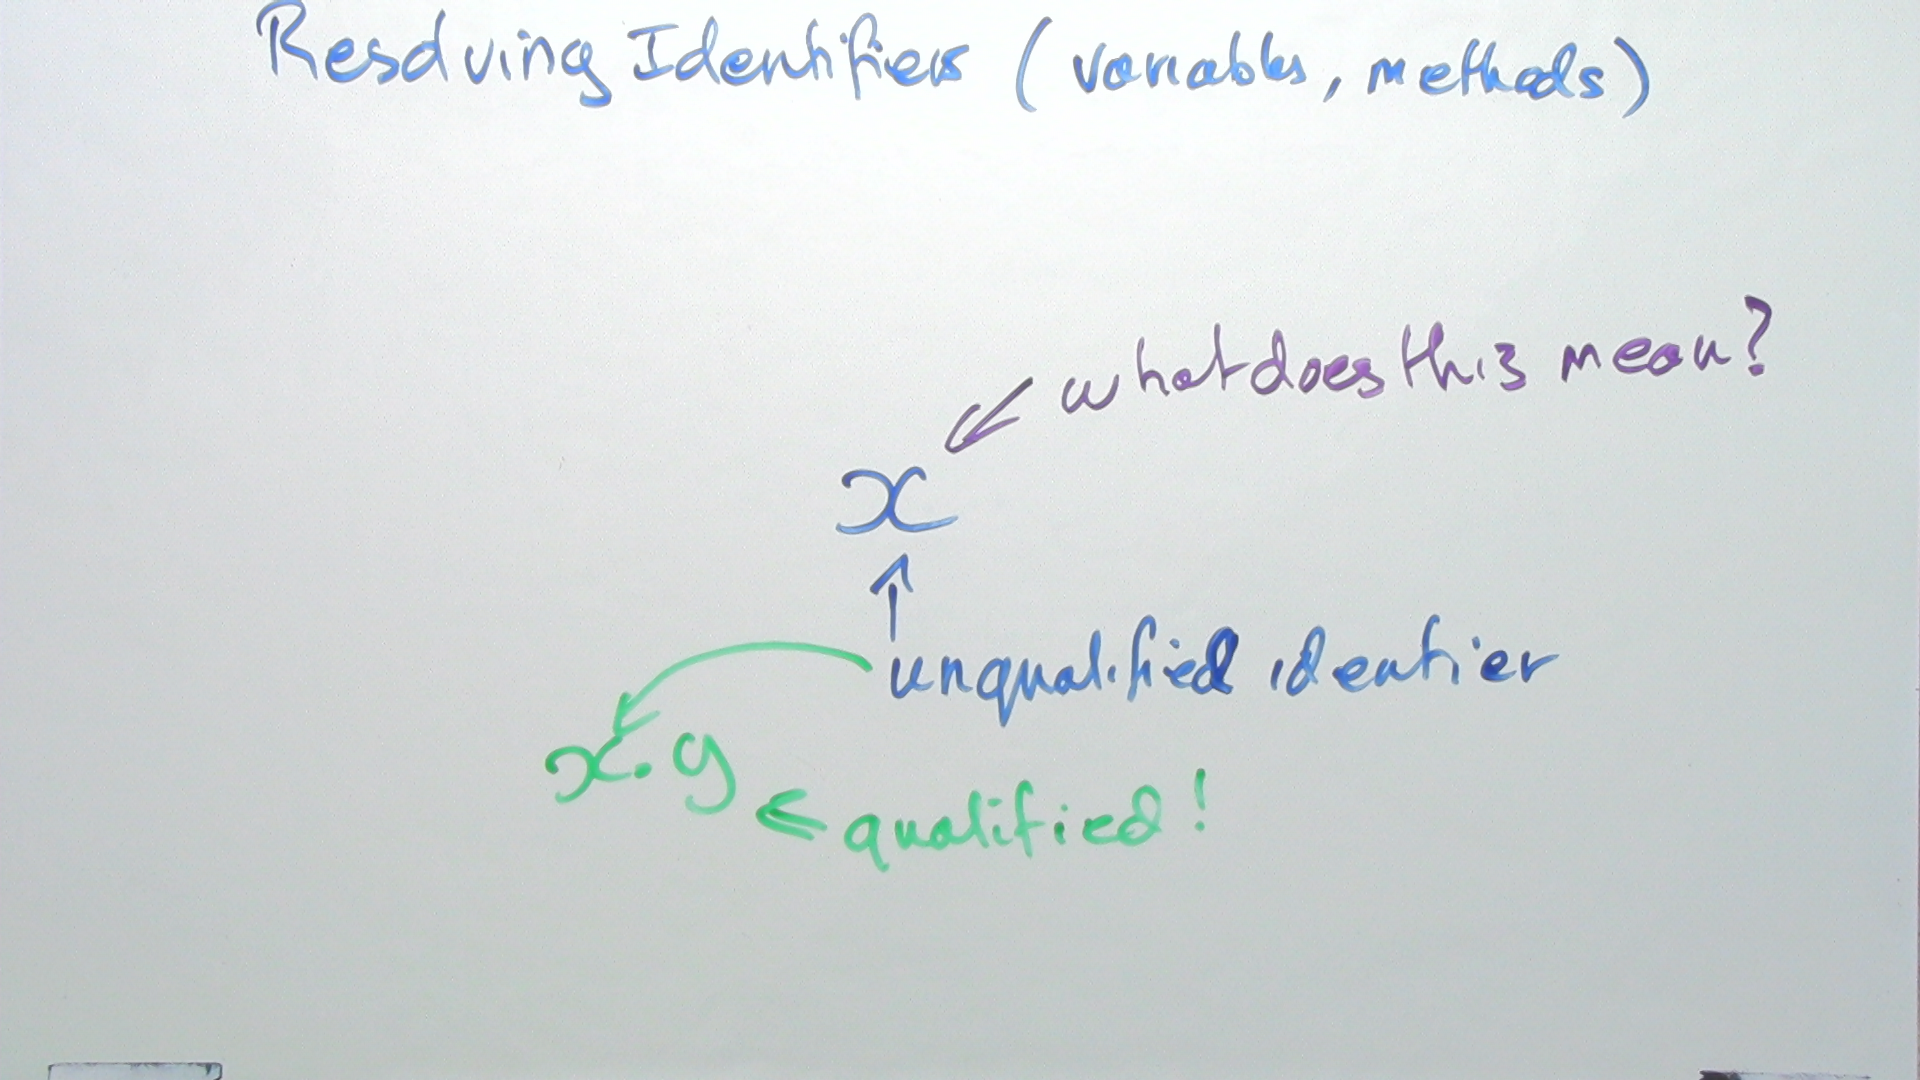 Resolving Identifiers (variables, methods)
what does this mean?
x
unqualified identifier
x.y
qualified!